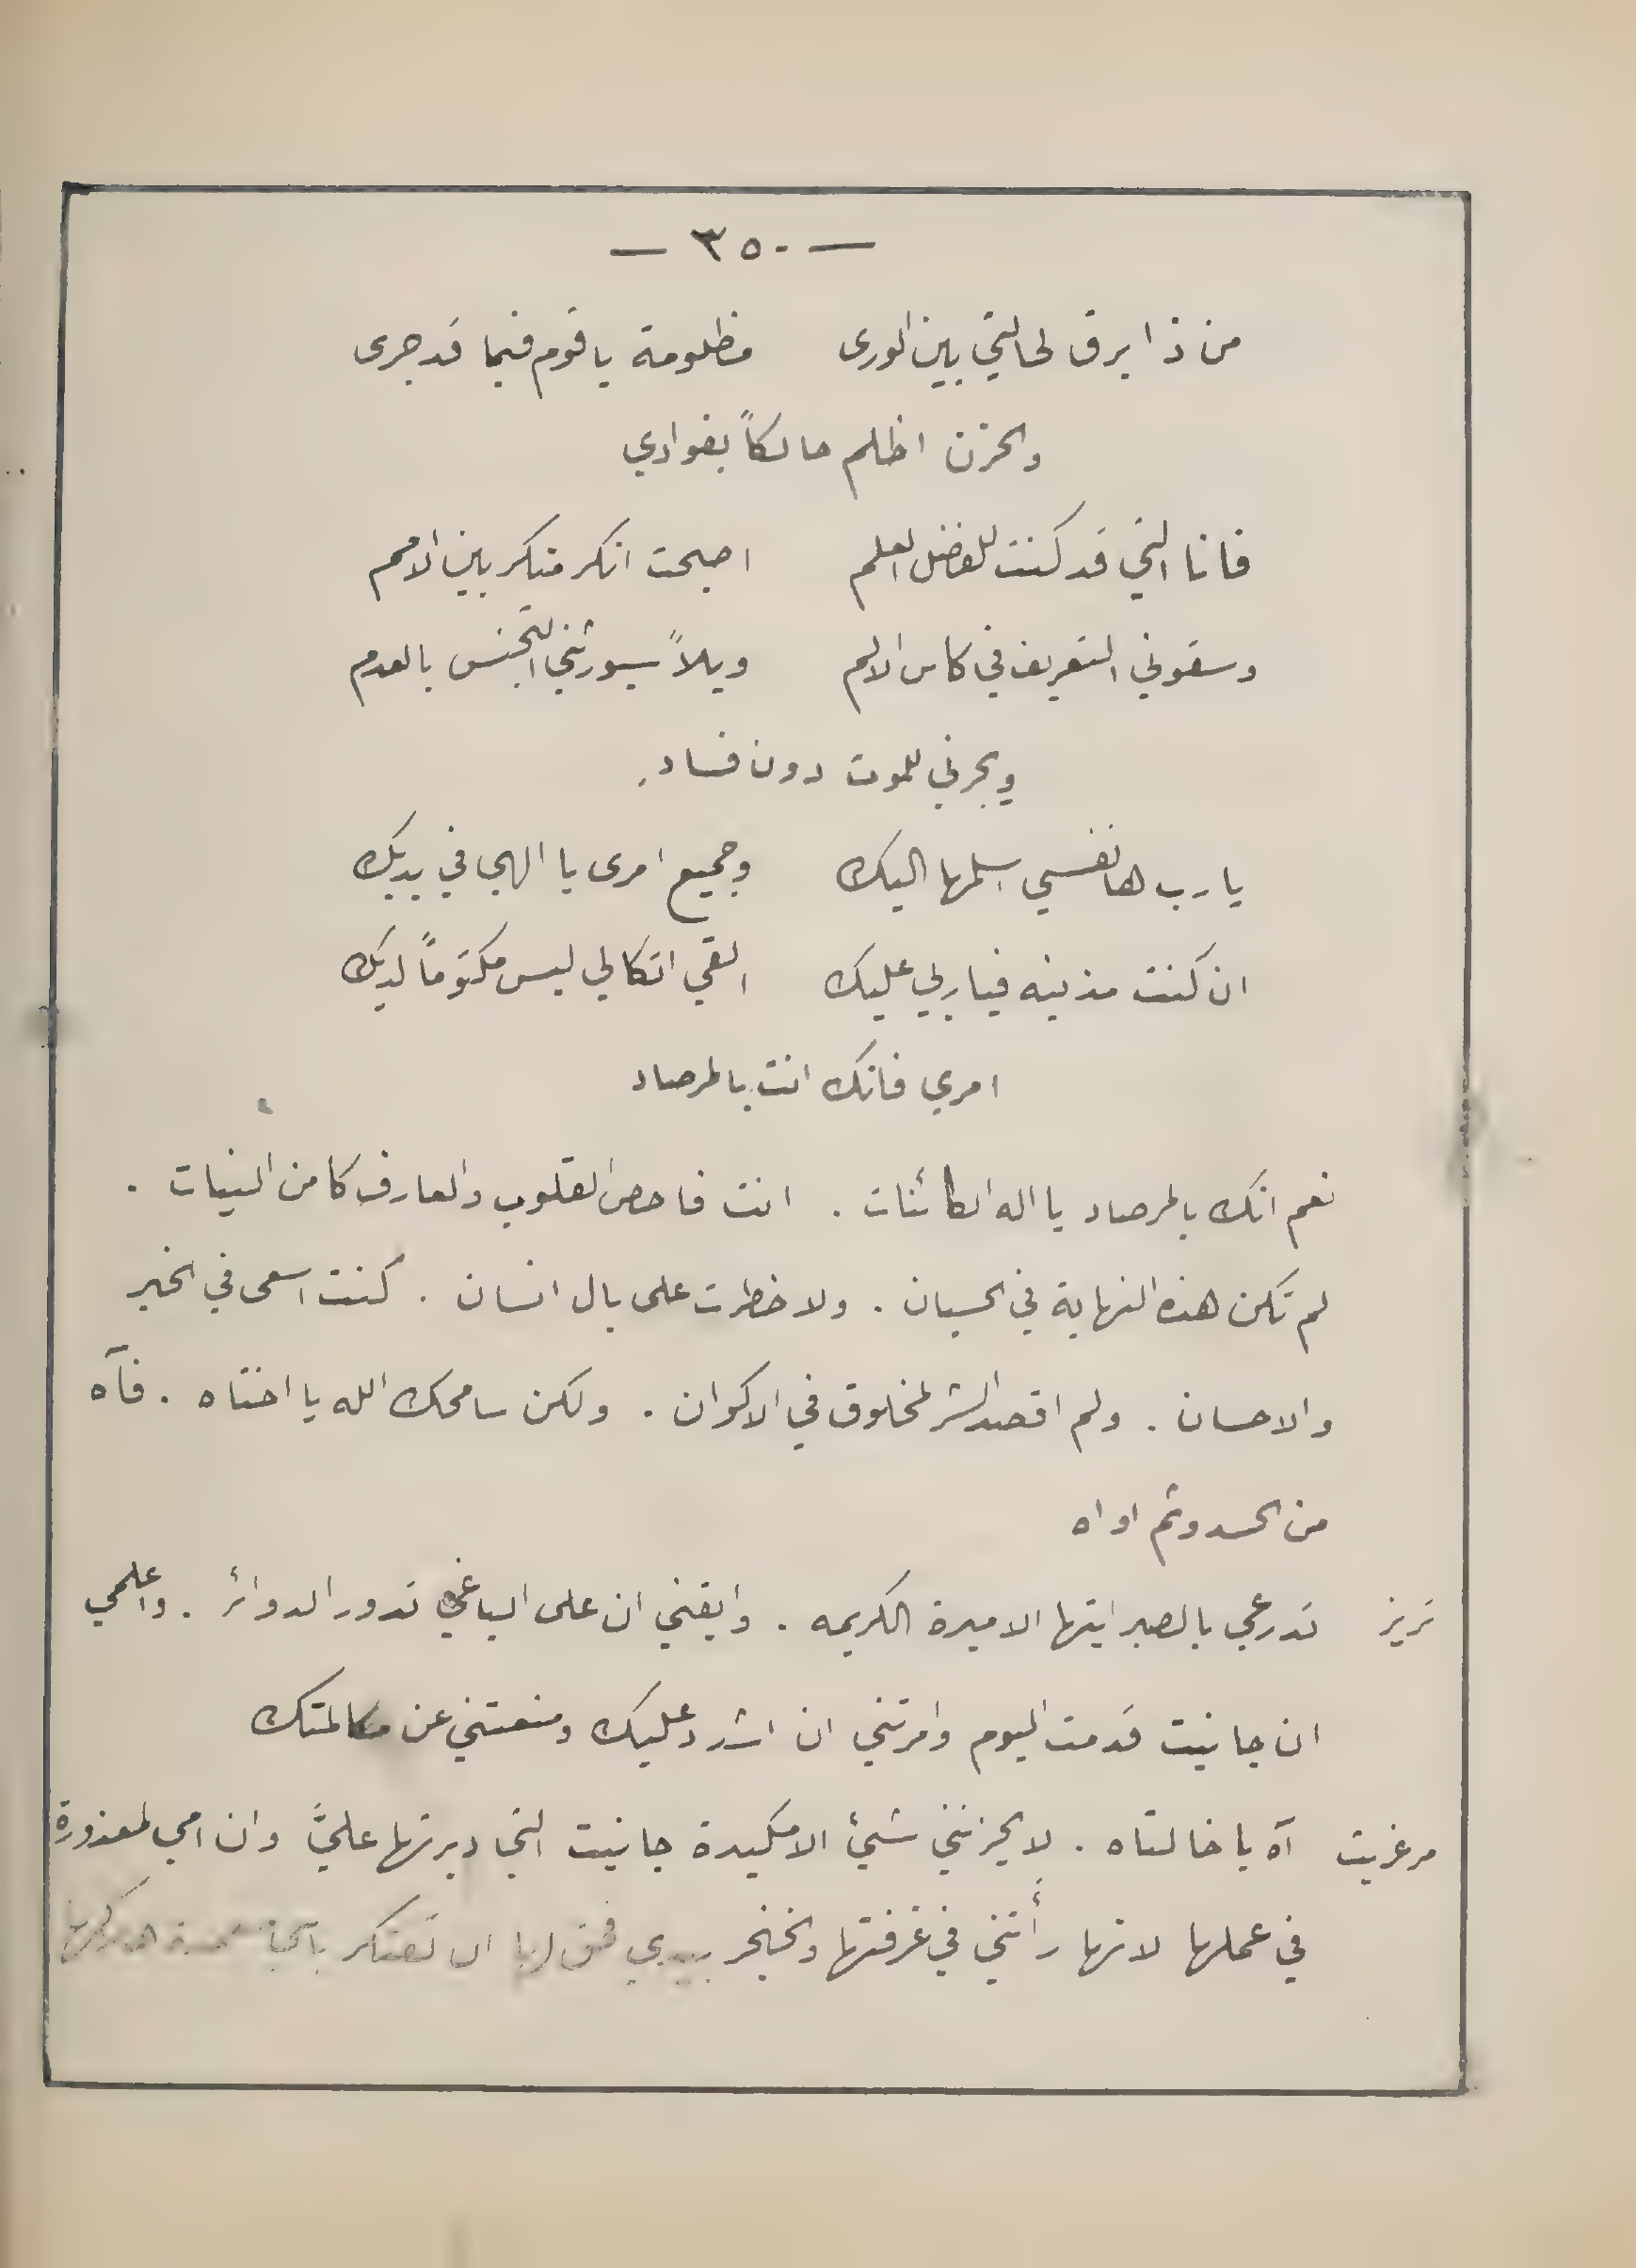 — ٣٥٠ —
من ذا يرق لحالتي بين الورى مظلومة يا قوم فيما قد جرى
والحزن اظلم حالكاً بفوادي
فانا التي قد كنت للفضل العلم اصبحت انكر منكر بين الامم
وسقوني التعريف في كاس الالم ويلاً سيورثني التجنس بالعدم
ويجرني للموت دون فساد.
يا رب ها نفسي اسلمها اليك وجميع امرى يا الهي في يديك
ان كنت مذنبه فيا ربي عليك القي اتكالي ليس مكتوماً لديك
امري فانك انت بالمرصاد
نعم انك بالمرصاد يا اله الكائنات . انت فاحص القلوب والعارف كامن النيات .
لم تكن هذه النهاية في الحسبان . ولا خطرت على بال انسان . كنت اسعى في الخير
والاحسان . ولم اقصد الشر لمخلوق في الاكوان . ولكن سامحك الله يا اختاه . فآه
من الحسد وثم اواه
تريز تدرعي بالصبر ايتها الاميرة الكريمه . وايقني ان على الباغي تدور الدوائر . واعلمي
ان جانيت قدمت اليوم وامرتني ان اشدد عليك ومنعتني عن مكالمتك
مرغريت آه يا خالتاه . لا يحزنني شيئ الا مكيدة جانيت التي دبرتها عليَّ وان امي لمعذورة
في عملها لانها رأتني في غرفتها والخنجر بيدي فحق لها ان تفتكر